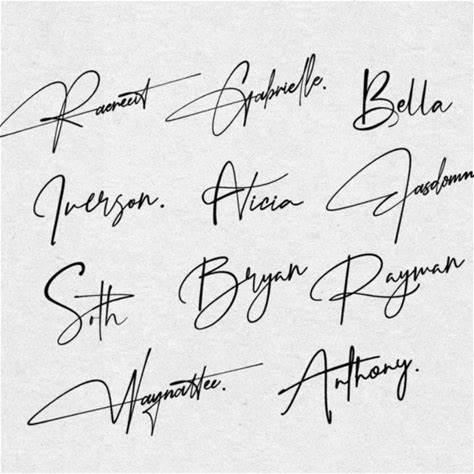 Raeneeit Gabrielle. Bella
Iverson. Alicia Jasdomn
Soth Bryan Rayman
Waynattee. Anthony.